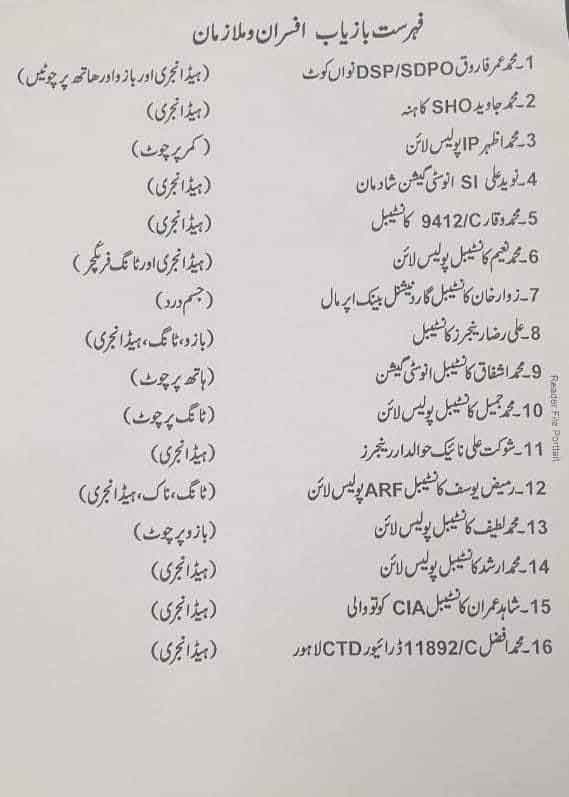 فہرست بازیاب افسران و ملازمان
1۔محمد عمر فاروق DSP/SDPO نواں کوٹ (ہیڈ انجری اور بازو اور ہاتھ پر چوٹیں)
2۔محمد جاوید SHO کاہنہ (ہیڈ انجری)
3۔محمد اظہر IP پولیس لائن (کمر پر چوٹ)
4۔نوید علی SI انوسٹی گیشن شادمان (ہیڈ انجری)
5۔محمد وقار 9412/C کانٹیبل (ہیڈ انجری)
6۔محمد نعیم کانٹیبل پولیس لائن (ہیڈ انجری اور ٹانگ فریکچر)
7۔زوار خان کانٹیبل گارد نیشنل بینک اپر مال (جسم درد)
8۔علی رضا رینجرز کانٹیبل (بازو، ٹانگ، ہیڈ انجری)
9۔محمد اشفاق کانٹیبل انوسٹی گیشن (ہاتھ پر چوٹ)
10۔محمد جمیل کانٹیبل پولیس لائن (ٹانگ پر چوٹ)
11۔شوکت علی نائیک حوالدار رینجرز (ہیڈ انجری)
12۔رمیض یوسف کانٹیبل ARF پولیس لائن (ٹانگ، ناک، ہیڈ انجری)
13۔محمد لطیف کانٹیبل پولیس لائن (بازو پر چوٹ)
14۔محمد ارشد کانٹیبل پولیس لائن (ہیڈ انجری)
15۔شاہد عمران کانٹیبل CIA کوتوالی (ہیڈ انجری)
16۔محمد افضل 11892/C ڈرائیور CTD لاہور (ہیڈ انجری)
Reader File Portlait